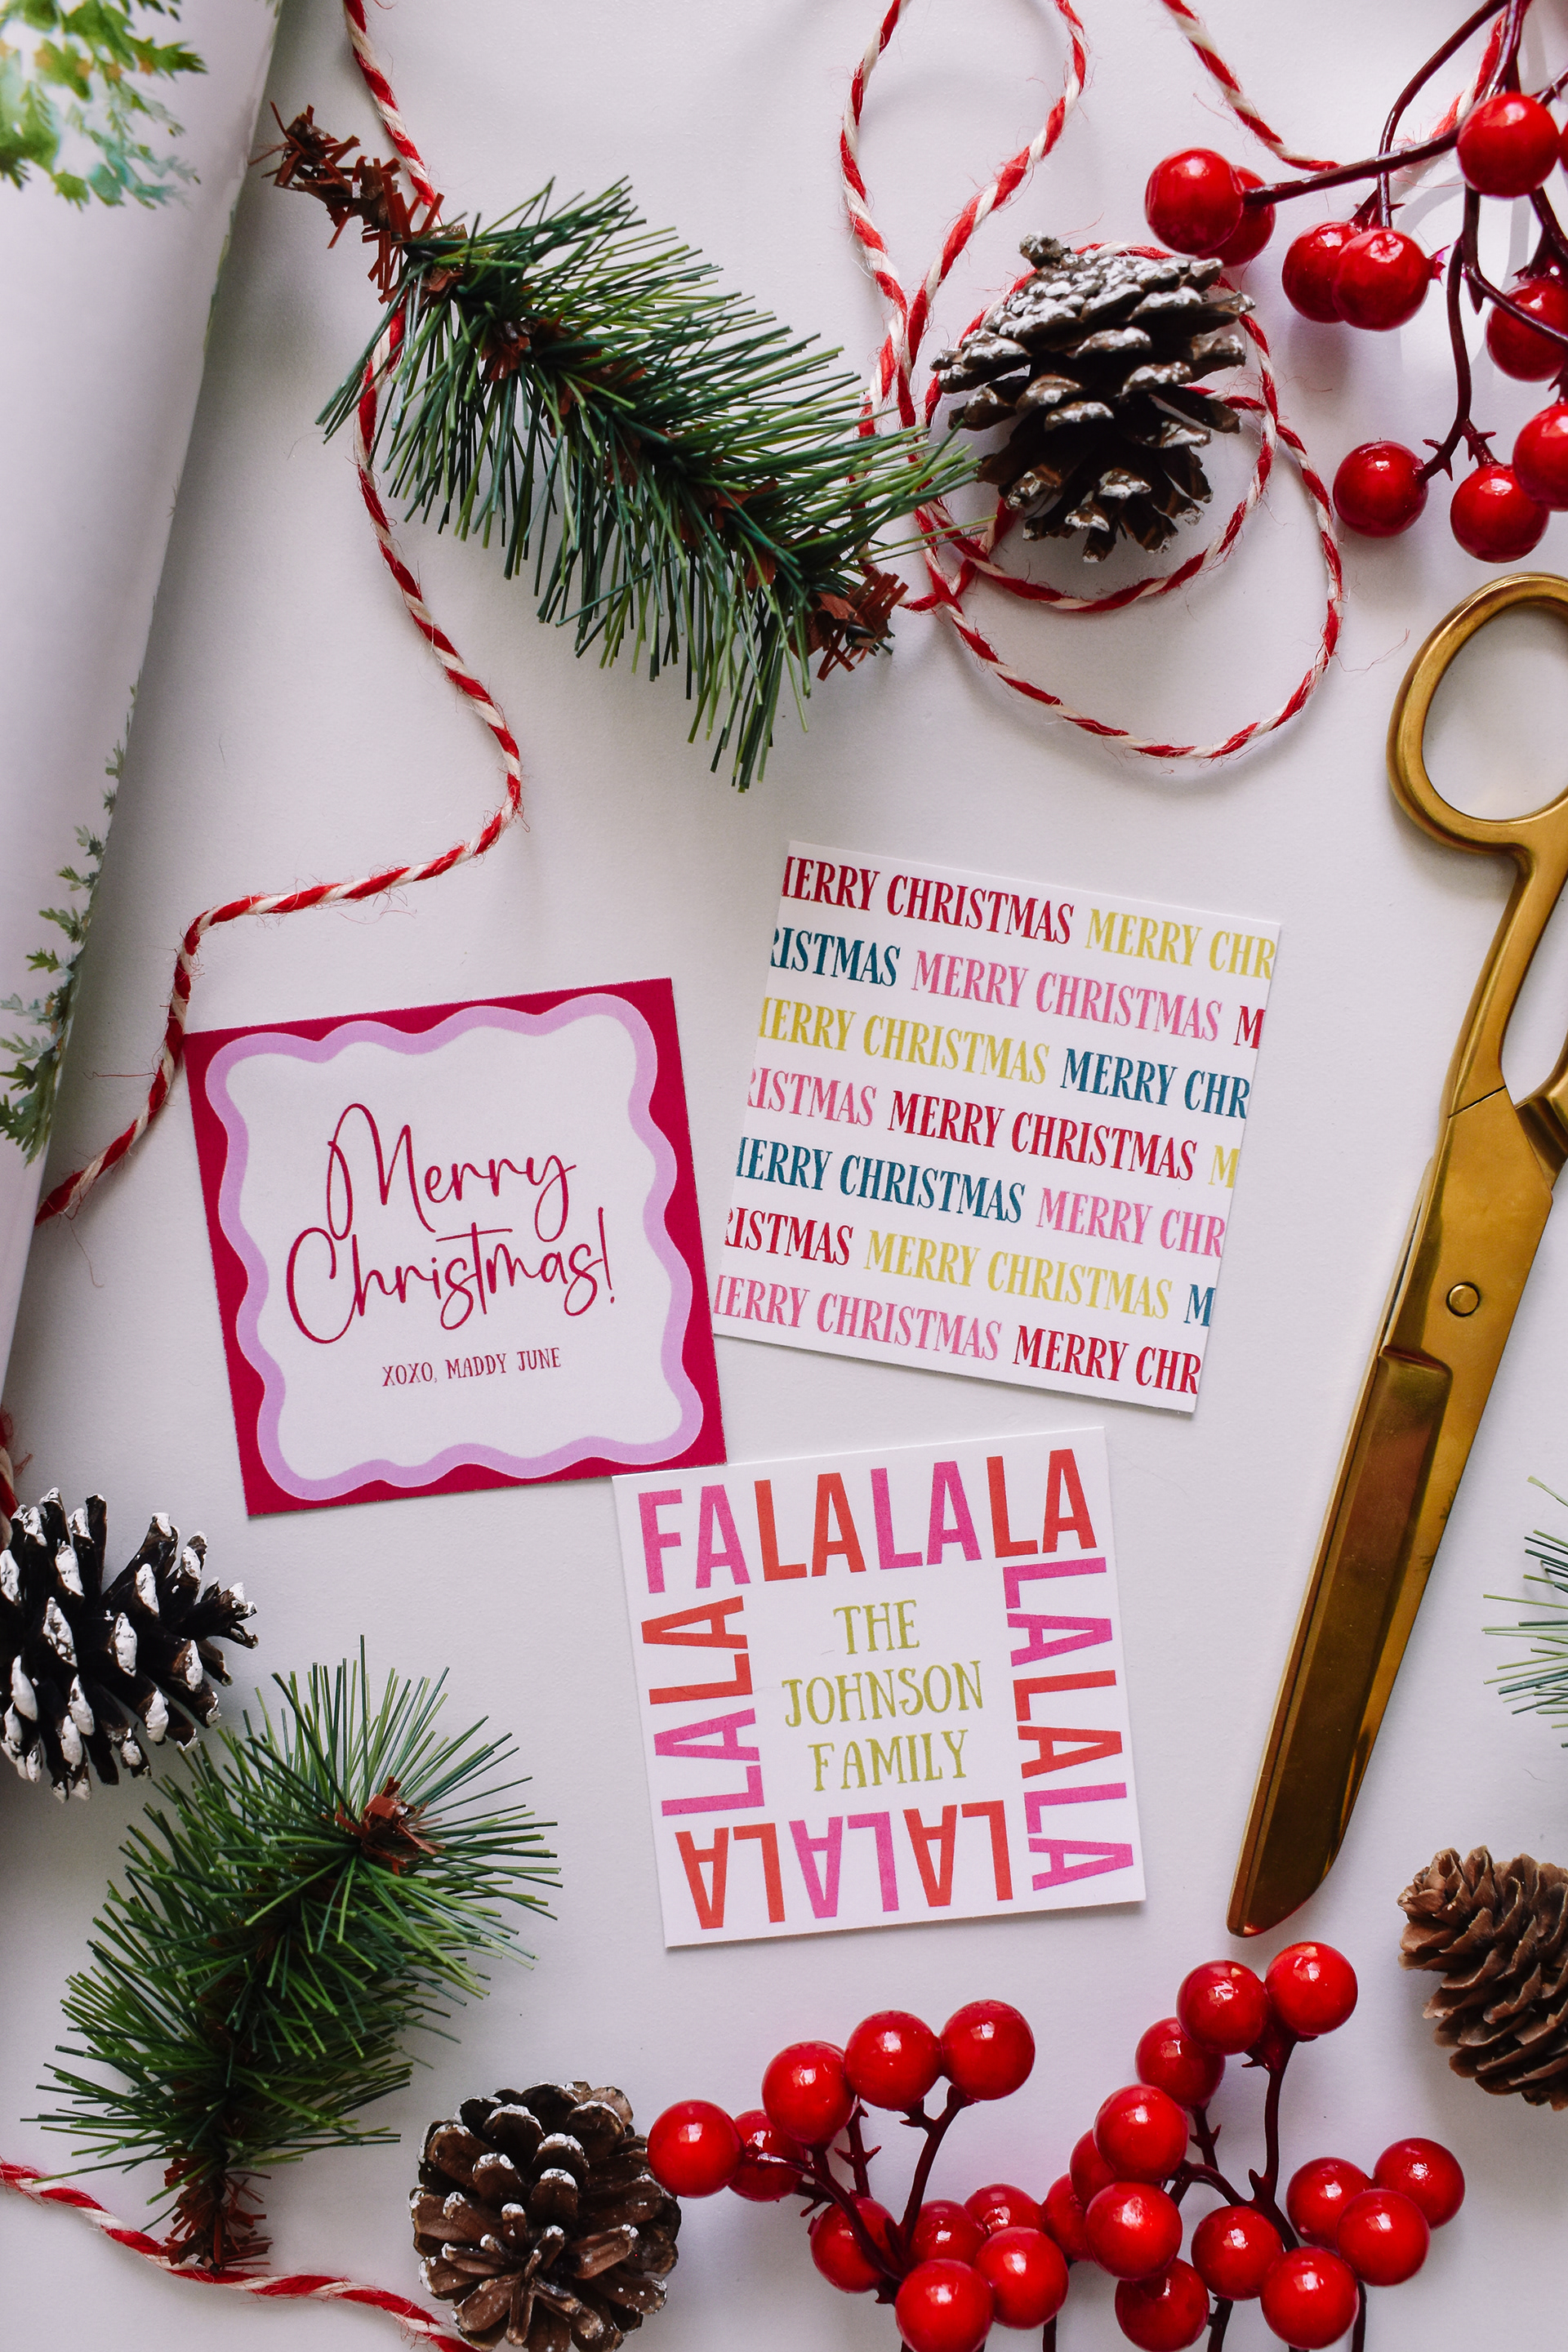 Merry
Christmas!
XOXO, MADDY JUNE
MERRY CHRISTMAS MERRY CHR
RISTMAS MERRY CHRISTMAS M
MERRY CHRISTMAS MERRY CHR
RISTMAS MERRY CHRISTMAS M
MERRY CHRISTMAS MERRY CHR
RISTMAS MERRY CHRISTMAS M
MERRY CHRISTMAS MERRY CHR
FALALALA
LALALA
LALALA
LALA
THE
JOHNSON
FAMILY